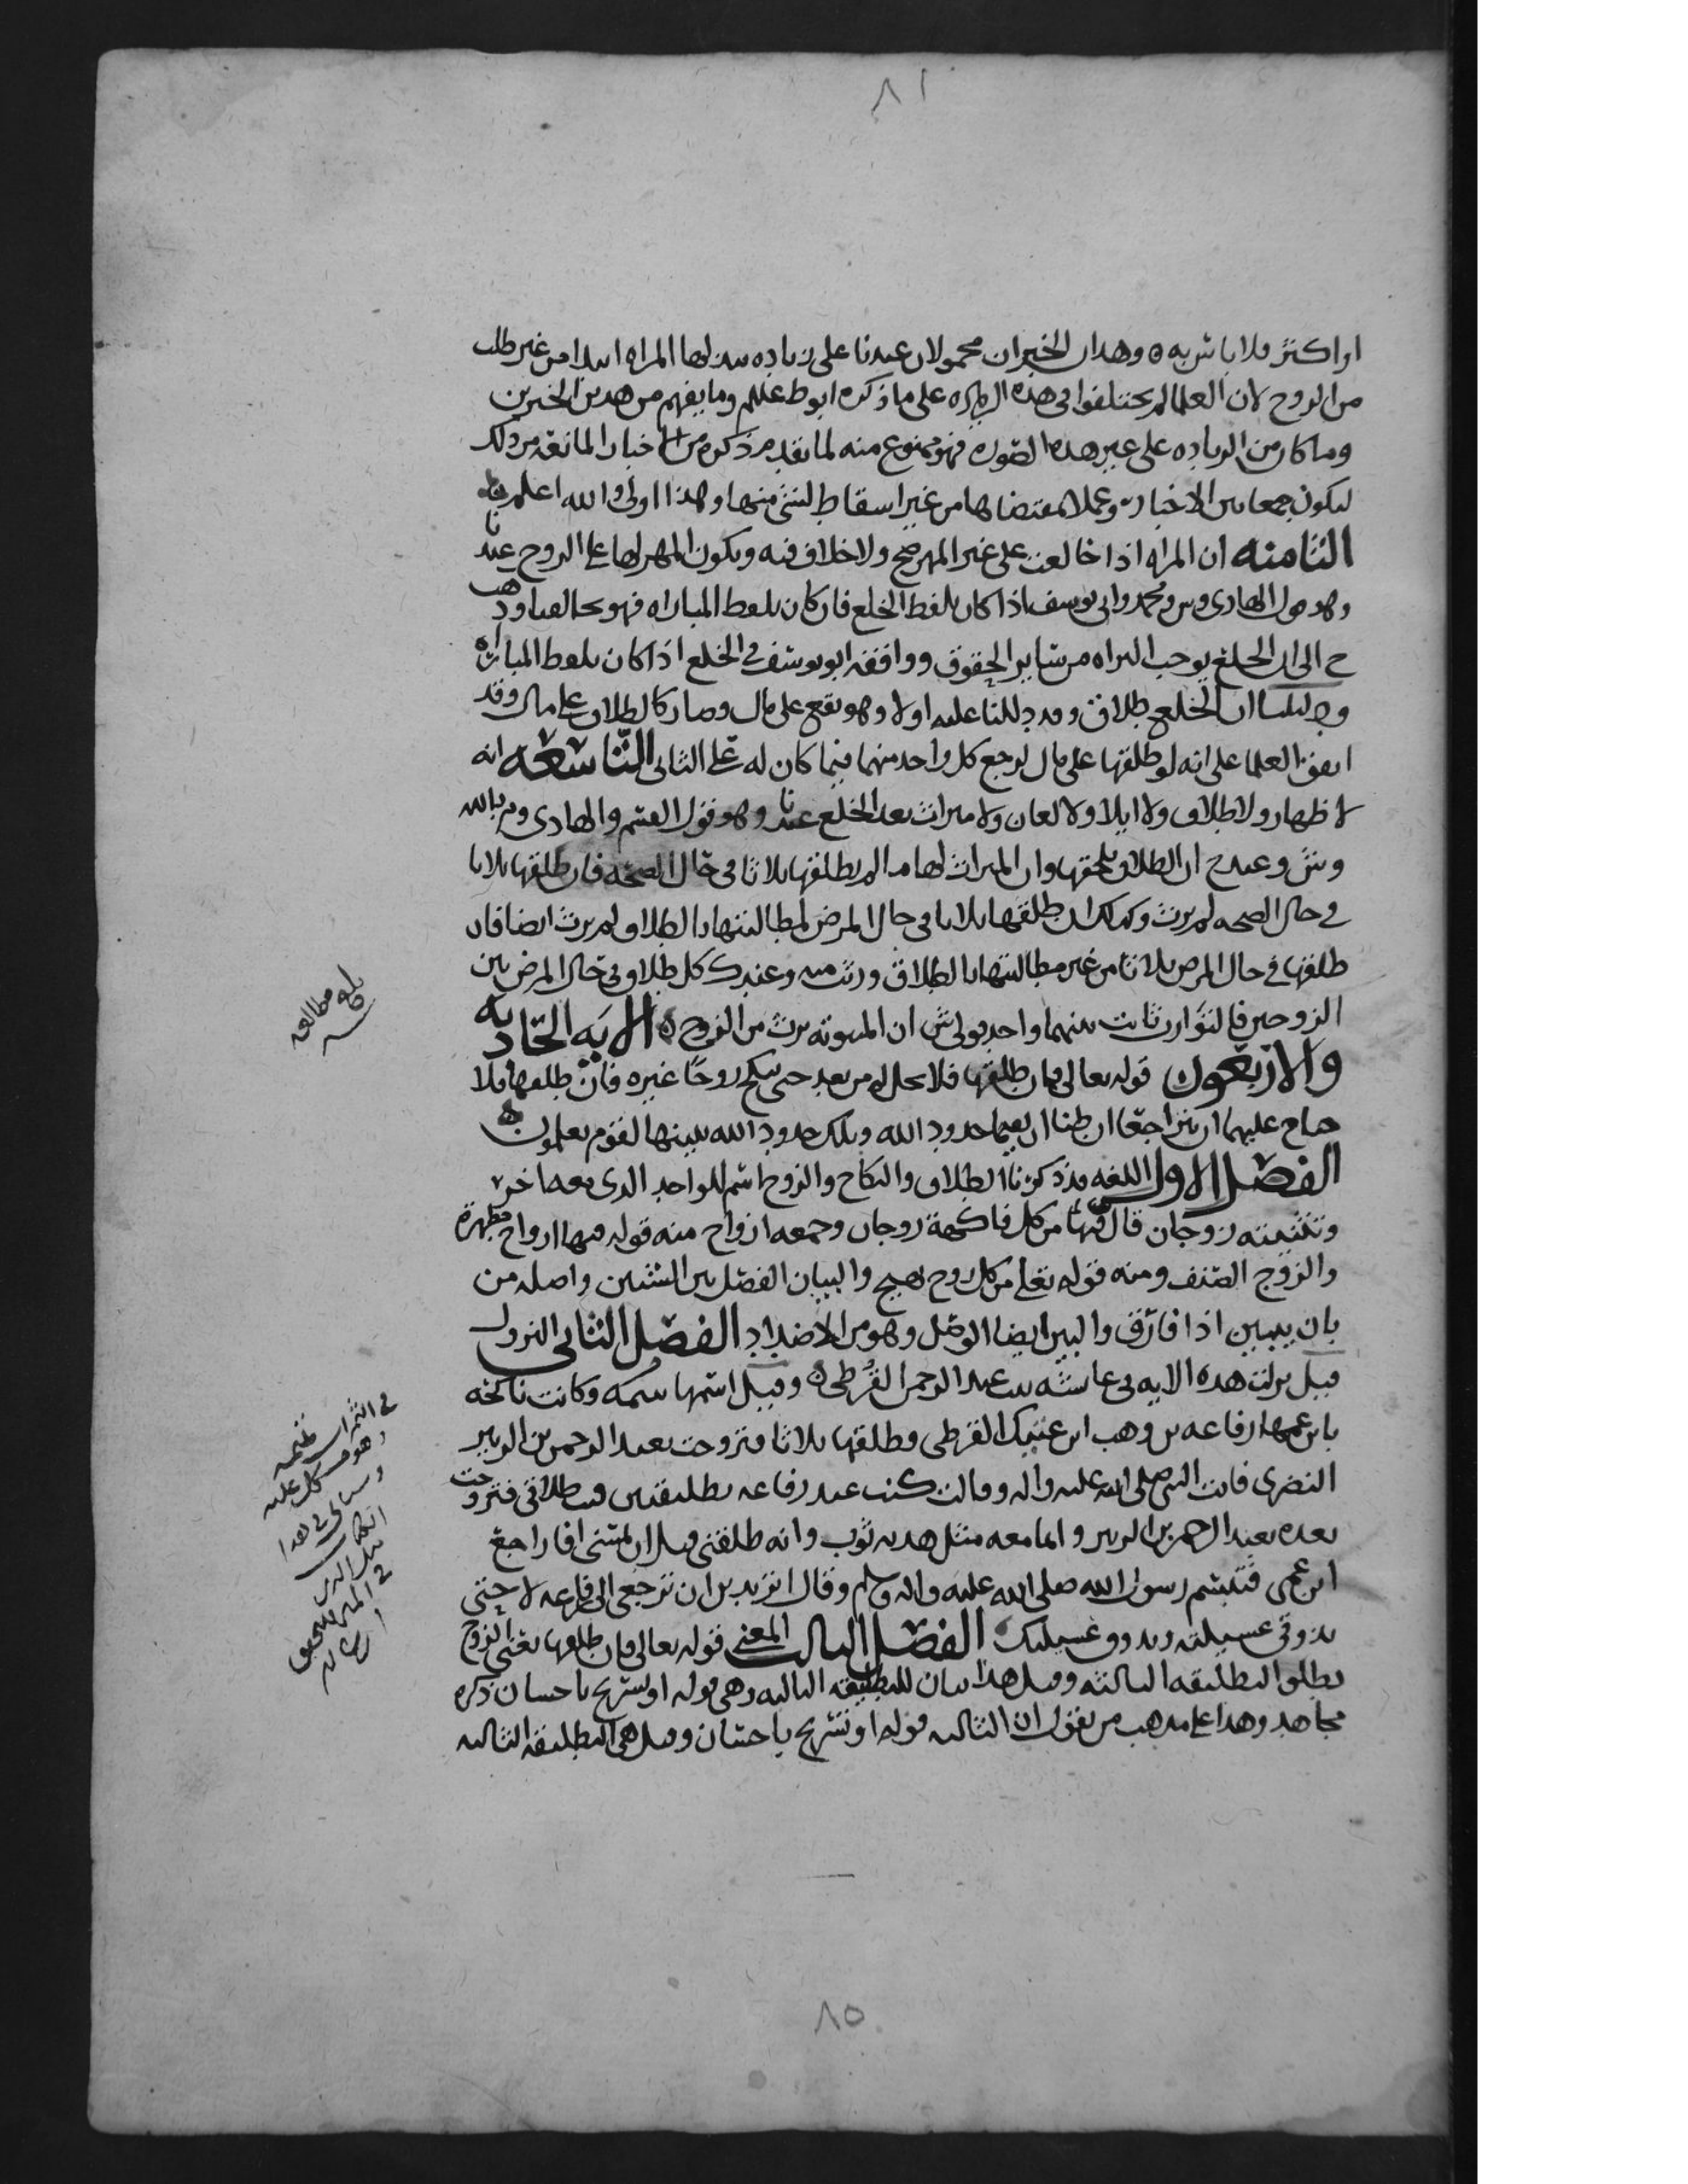 ٨١
او اكثر فلا باس به ٥ وهذان الخبران محمولان عندنا على زياده بذلها المراه ابتدا من غير طلب
من الزوج لان العلما لم يختلفوا فى هذه الزياده على ما ذكره ابو ط عللم وما يفهم من هذين الخبرين
وما كان من الزياده على غير هذه الصوره فهو ممنوع منه لما تقدم ذكره من الاخبار المانعه من ذلك
ليكون جمعا بين الاخبار وعملا بمقتضاها من غير اسقاط لشى منها وهذا اولى والله اعلم
الثامنه ان المراه اذا خالعت على غير المهر صح ولا خلاف فيه ويكون المهر لها على الزوج عندنا
وهو قول الهادى وس ومحمد وابى يوسف اذا كان بلفظ الخلع فان كان بلفظ المباراه فهو يخالفنا وذهب
ح الى ان الخلع يوجب البراه من سائر الحقوق ووافقه ابو يوسف فى الخلع اذا كان بلفظ المباراه
ودليلنا ان الخلع طلاق وقد دللنا عليه اولا وهو يقع على مال وصار كالطلاق على مال وقد
اتفق العلما على انه لو طلقها على مال لرجع كل واحد منهما فيما كان له على الثانى التاسعه انه
لا ظهار ولا طلاق ولا ايلا ولا لعان ولا ميراث بعد الخلع عندنا وهو قول القسم والهادى وم بالله
وش وعند ح ان الطلاق يلحقها وان الميراث لها ما لم يطلقها ثلاثا فى حال الصحه فان طلقها ثلاثا
فى حال الصحه لم يرث وكذلك ان طلقها ثلاثا فى حال المرض لمطالبتها بالطلاق لم يرث ايضا فان
طلقها فى حال المرض ثلاثا من غير مطالبتها بالطلاق ورثت منه وعند ك كل طلاق فى حال المرض بين
الزوجين فالتوارث ثابت بينهما واحد قولى ش ان المبتوته ترث من الزوج ٥ الايه الحاديه
والاربعون قوله تعالى فان طلقها فلا تحل له من بعد حتى تنكح زوجا غيره فان طلقها فلا
جناح عليهما ان يتراجعا ان ظنا ان يقيما حدود الله وتلك حدود الله يبينها لقوم يعلمون ٥
الفصل الاول اللغه قد ذكرنا الطلاق والنكاح والزوج اسم للواحد الذى معه اخر
وتثنيته زوجان قال فيهما من كل فاكهة زوجان وجمعه ازواج منه قوله فيها ازواج مطهرة
والزوج الصنف ومنه قوله تعلى من كل زوج بهيج والبيان الفصل بين الشيئين واصله من
بان يبين اذا فارق والبين ايضا الوصل وهو من الاضداد الفصل الثانى النزول
قيل نزلت هذه الايه فى عائشه بنت عبد الرحمن القرظى ٥ وقيل اسمها تميمه وكانت ناكحه
بابن عمها رفاعه بن وهب ابن عتيك القرظى وطلقها ثلاثا فتزوجت بعبد الرحمن بن الزبير
النضرى فاتت النبى صلى الله عليه واله وقالت كنت عند رفاعه بطليقتين فبت طلاقى فتزوجت
بعده بعبد الرحمن بن الزبير وانما معه مثل هدبه ثوب وانه طلقنى قبل ان يمسنى افاراجع
ابن عمى فتبسم رسول الله صلى الله عليه واله وسلم وقال اتريدين ان ترجعى الى رفاعه لا حتى
تذوقى عسيلته ويذوق عسيلتك الفصل الثالث المعنى قوله تعالى فان طلقها يعنى الزوج
يطلق التطليقه الثالثه وقيل هذا بيان للتطليقه الثالثه وهى قوله او تسريح باحسان ذكره
مجاهد وهذا على مذهب من يقول ان الثالثه قوله او تسريح باحسان وقيل هى التطليقه الثالثه
بلغ مطالعه
فى الثمرات تميمه
وهو مشكل عليه
٨٥